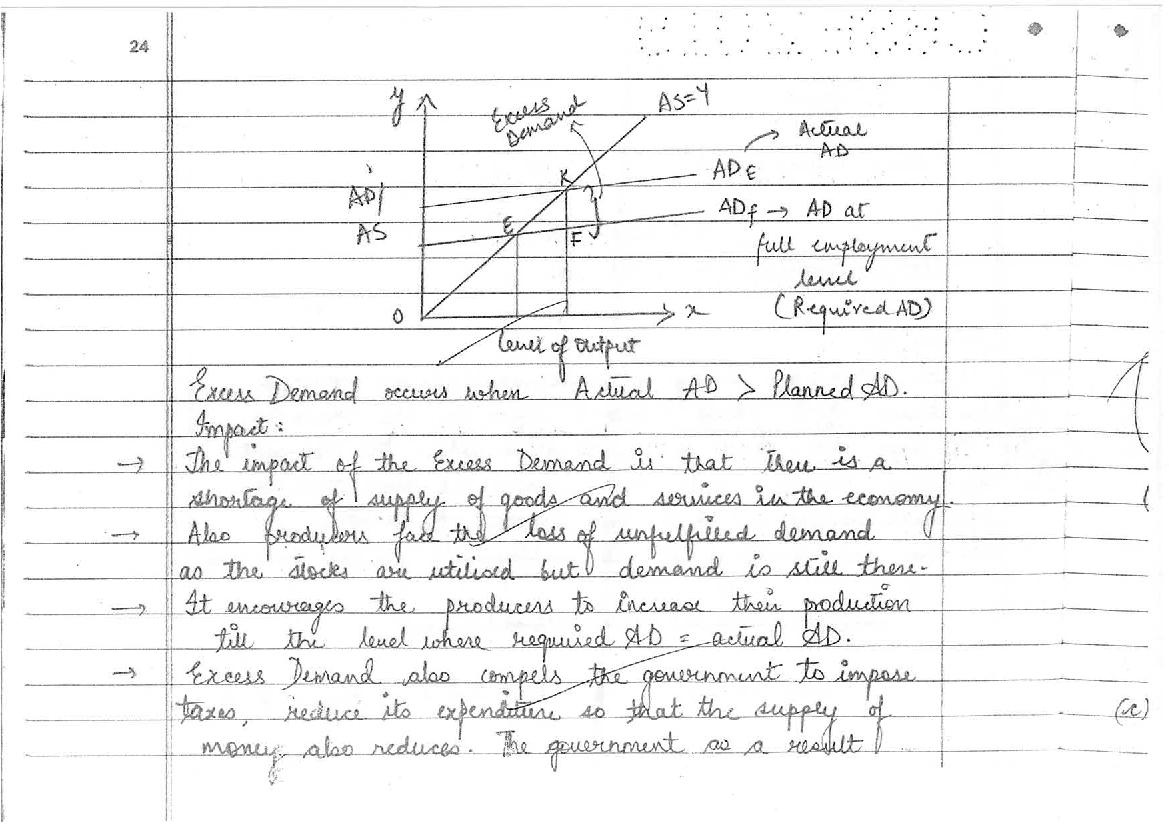 24
y
Excess
Demand
AS=Y
Actual
AD
AD E
K
AD/
AS
ADf → AD at
E
F
full employment
level
(Required AD)
O
x
level of output
Excess Demand occurs when Actual AD > Planned AD.
Impact:
→ The impact of the Excess Demand is that there is a
shortage of supply of goods and services in the economy.
→ Also producers face the loss of unfulfilled demand
as the stocks are utilised but demand is still there.
→ It encourages the producers to increase their production
till the level where required AD = actual AD.
→ Excess Demand also compels the government to impose
taxes, reduce its expenditure so that the supply of
money also reduces. The government as a result